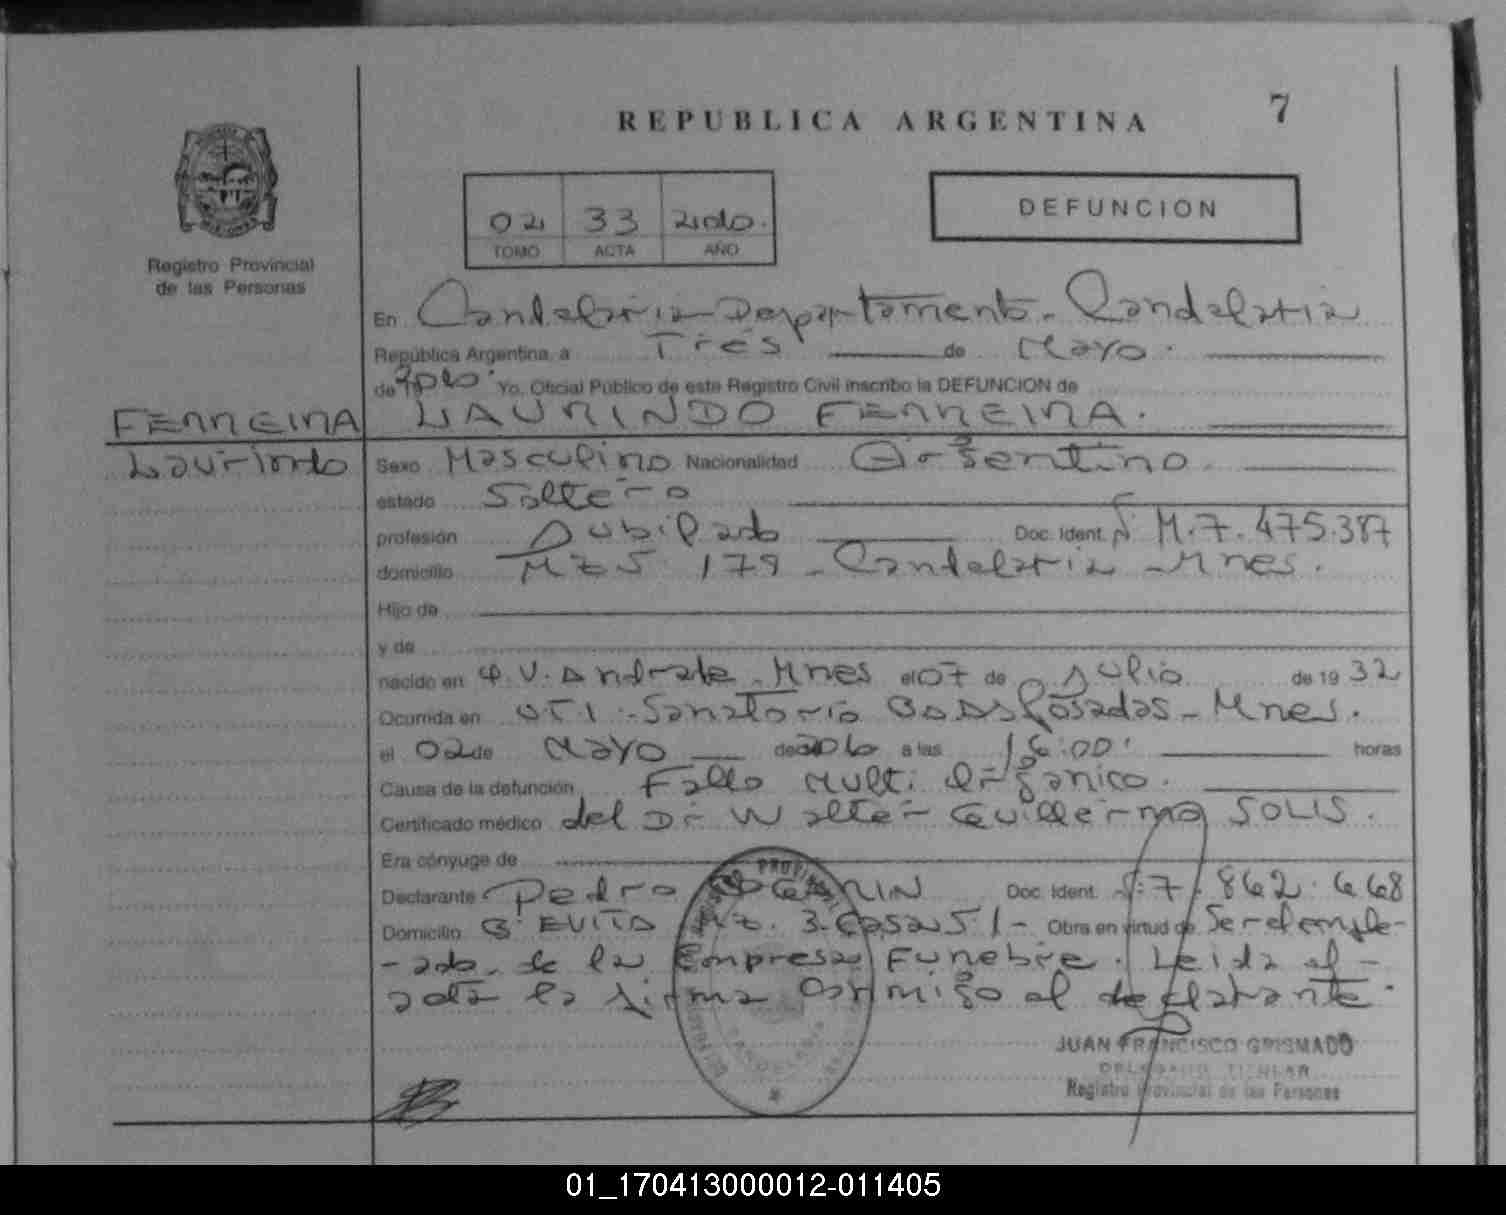 REPUBLICA ARGENTINA
7
02 33 2010.
TOMO ACTA AÑO
DEFUNCION
Registro Provincial
de las Personas
En Candelaria Departamento. Candelaria
República Argentina, a Tres de Mayo.
de 2010. Yo, Oficial Público de este Registro Civil inscribo la DEFUNCION de
LAURINDO FERREIRA.
FERREIRA
Laurindo
Sexo Masculino Nacionalidad Argentino
estado Soltero
profesión Jubilado Doc. Ident. M.7.475.387
domicilio Mz 5 179 - Candelaria - Mnes.
Hijo de
y de
nacido en O.V. Andrade. Mnes el 07 de Julio de 19 32
Ocurrida en UTI - Sanatorio Posadas - Mnes.
el 02 de Mayo de 2010 a las 16:00' horas
Causa de la defunción Fallo Multi Orgánico.
Certificado médico del Dr Walter Guillermo SOLIS.
Era cónyuge de
Declarante Pedro Doc. Ident. 7.862.668
Domicilio Bº EVITA Mz. 3. Casa 51 - Obra en virtud de Ser el emple-
-ado de la Empresa Funebre. Leida el
acta la firma conmigo el declarante.
JUAN FRANCISCO GRISMADO
DELEGADO TITULAR
Registro Provincial de las Personas
01_170413000012-011405